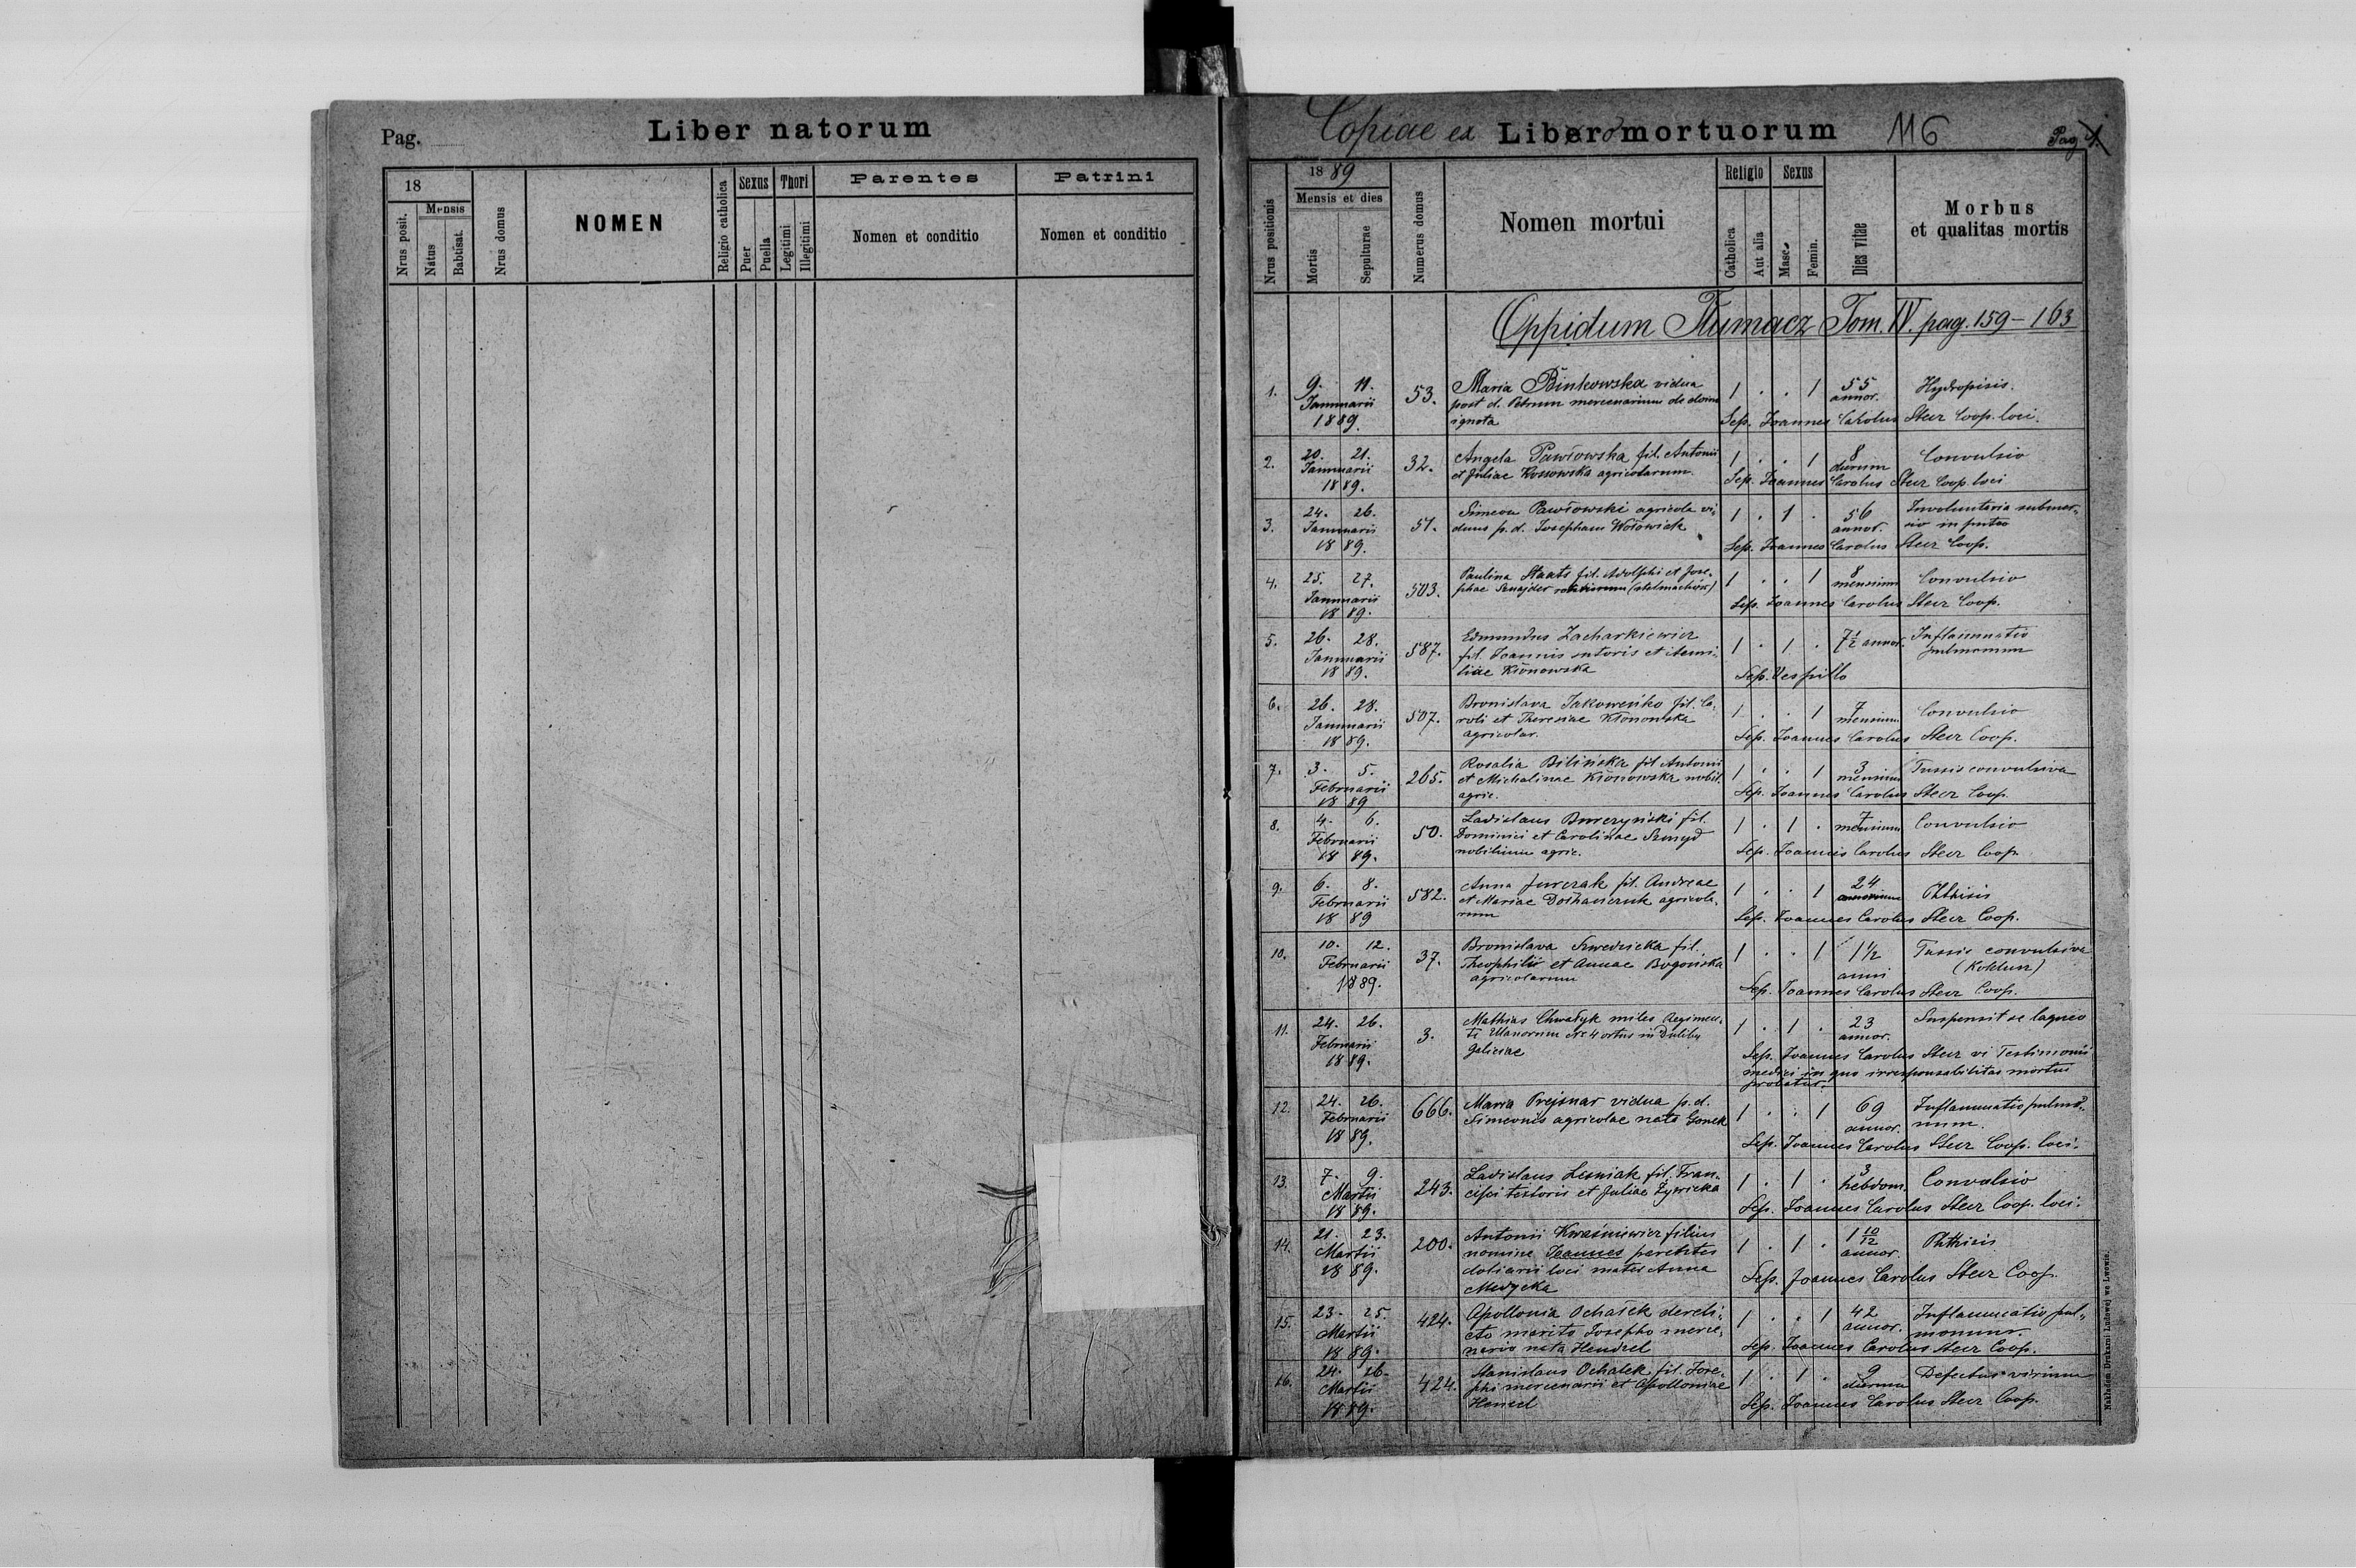 Pag.
Liber natorum
18
Mensis
Nrus posit.
Natus
Babtisat.
Nrus domus
NOMEN
Religio catholica
Sexus
Puer
Puella
Thori
Legitimi
Illegitimi
Parentes
Nomen et conditio
Patrini
Nomen et conditio
Copiae ex Libero mortuorum 116 Pag 1.
Nrus positionis
1889
Mensis et dies
Mortis
Sepulturae
Numerus domus
Nomen mortui
Religio
Catholica
Aut alia
Sexus
Masc.
Femin.
Dies vitae
Morbus
et qualitas mortis
Oppidum Tłumacz Tom. IV. pag. 159-163
1. 9. 11. Januarii 1889. 53. Maria Binkowska vidua
post d. Petrum mercenarium de domo
ignota
1 . . 1 55 annor. Hydropisis.
Sep. Joannes Carolus Sterz Coop. loci.
2. 20. 21. Januarii 1889. 32. Angela Pawłowska fil. Antonii
et Juliae Kossowska agricolarum
1 . . 1 8 dierum Convulsio
Sep. Joannes Carolus Sterz Coop. loci
3. 24. 26. Januarii 1889. 51. Simeon Pawłowski agricola vi-
duus p. d. Josepham Wołowiak
1 . 1 . 56 annor. Involuntaria submer-
sio in puteo
Sep. Joannes Carolus Sterz Coop.
4. 25. 27. Januarii 1889. 503. Paulina Staats fil. Adolphi et Jose-
phae Sznajder (stelmachów)
1 . . 1 8 mensium Convulsio
Sep. Joannes Carolus Sterz Coop.
5. 26. 28. Januarii 1889. 587. Edmundus Zacharkiewicz
fil. Joannis sutoris et Aemi-
liae Kłonowska
1 . 1 . 7½ annor. Inflammatio
pulmonum
Sep. Vespillo
6. 26. 28. Januarii 1889. 507. Bronislava Jakoweńko fil. Ca-
roli et Theresiae Kłonowska
agricolar.
1 . . 1 7 mensium Convulsio
Sep. Joannes Carolus Sterz Coop.
7. 3. 5. Februarii 1889 265. Rosalia Bilińska fil Antonii
et Michalinae Kłonowska nobil.
agric.
1 . . 1 3 mensium Tussis convulsiva
Sep. Joannes Carolus Sterz Coop.
8. 4. 6. Februarii 1889. 50. Ladislaus fil.
Dominici et Carolinae Szmyd
nobilium agric.
1 . 1 . 7 mensium Convulsio
Sep. Joannes Carolus Sterz Coop
9. 6. 8. Februarii 1889 582. Anna Jurczak fil. Andreae
et Mariae agricola-
rum
1 . . 1 24 Phthisis
Sep. Joannes Carolus Sterz Coop.
10. 10. 12. Februarii 1889. 37. Bronislava Szwedzicka fil.
Theophilii et Annae Bogońska
agricolarum
1 . . 1 1½ anni Tussis convulsiva
(Koklusz)
Sep. Joannes Carolus Sterz Coop.
11. 24. 26. Februarii 1889. 3. Mathias Chwałyk miles Regimen-
ti Ulanorum Nr 4 ortus in Duliby
Galiciae
1 . 1 . 23 annor. Suspensit se laqueo
Sep. Joannes Carolus Sterz vi Testimonii
medici in quo irresponsabilitas mortui
probatur.
12. 24. 26. Februarii 1889. 666. Maria Prejsnar vidua p. d.
Simeonis agricolae nata Gonek
1 . . 1 69 annor. Inflammatio pulmo-
num.
Sep. Joannes Carolus Sterz Coop. loci.
13. 7. 9. Martii 1889. 243. Ladislaus Lesniak fil. Fran-
cisci textoris et Juliae Żywicka
1 . 1 . 3 hebdom. Convulsio
Sep. Joannes Carolus Sterz Coop. loci.
14. 21. 23. Martii 1889. 200. Antonii Kwaśniewicz filius
nomine Joannes parentes
doliarii loci mater Anna
Medycka
1 . 1 . 1 10/12 annor. Phthisis
Sep. Joannes Carolus Sterz Coop.
15. 23. 25. Martii 1889. 424. Apollonia Ochałek dereli-
cto marito Josepho merce-
nario nata Hendzel
1 . . 1 42 annor. Inflammatio pul-
monum.
Sep. Joannes Carolus Sterz Coop.
16. 24. 26. Martii 1889. 424. Stanislaus Ochałek fil. Jose-
phi mercenarii et Apolloniae
Henzel
1 . 1 . 9 dierum Defectus virium
Sep. Joannes Carolus Sterz Coop.
Nakładem Drukarni Ludowej we Lwowie.